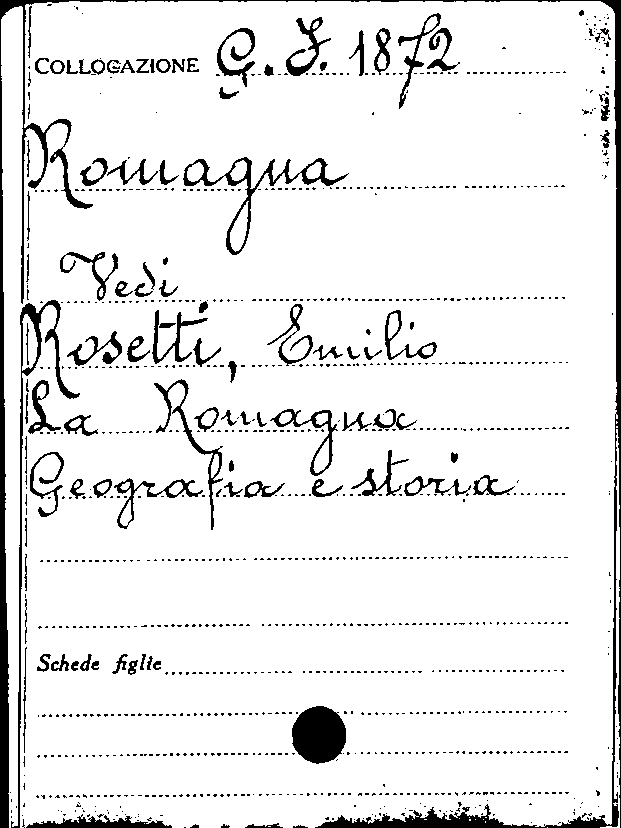 COLLOCAZIONE G. I. 1872
Romagna
Vedi
Rosetti, Emilio
La Romagna
Geografia e storia
Schede figlie